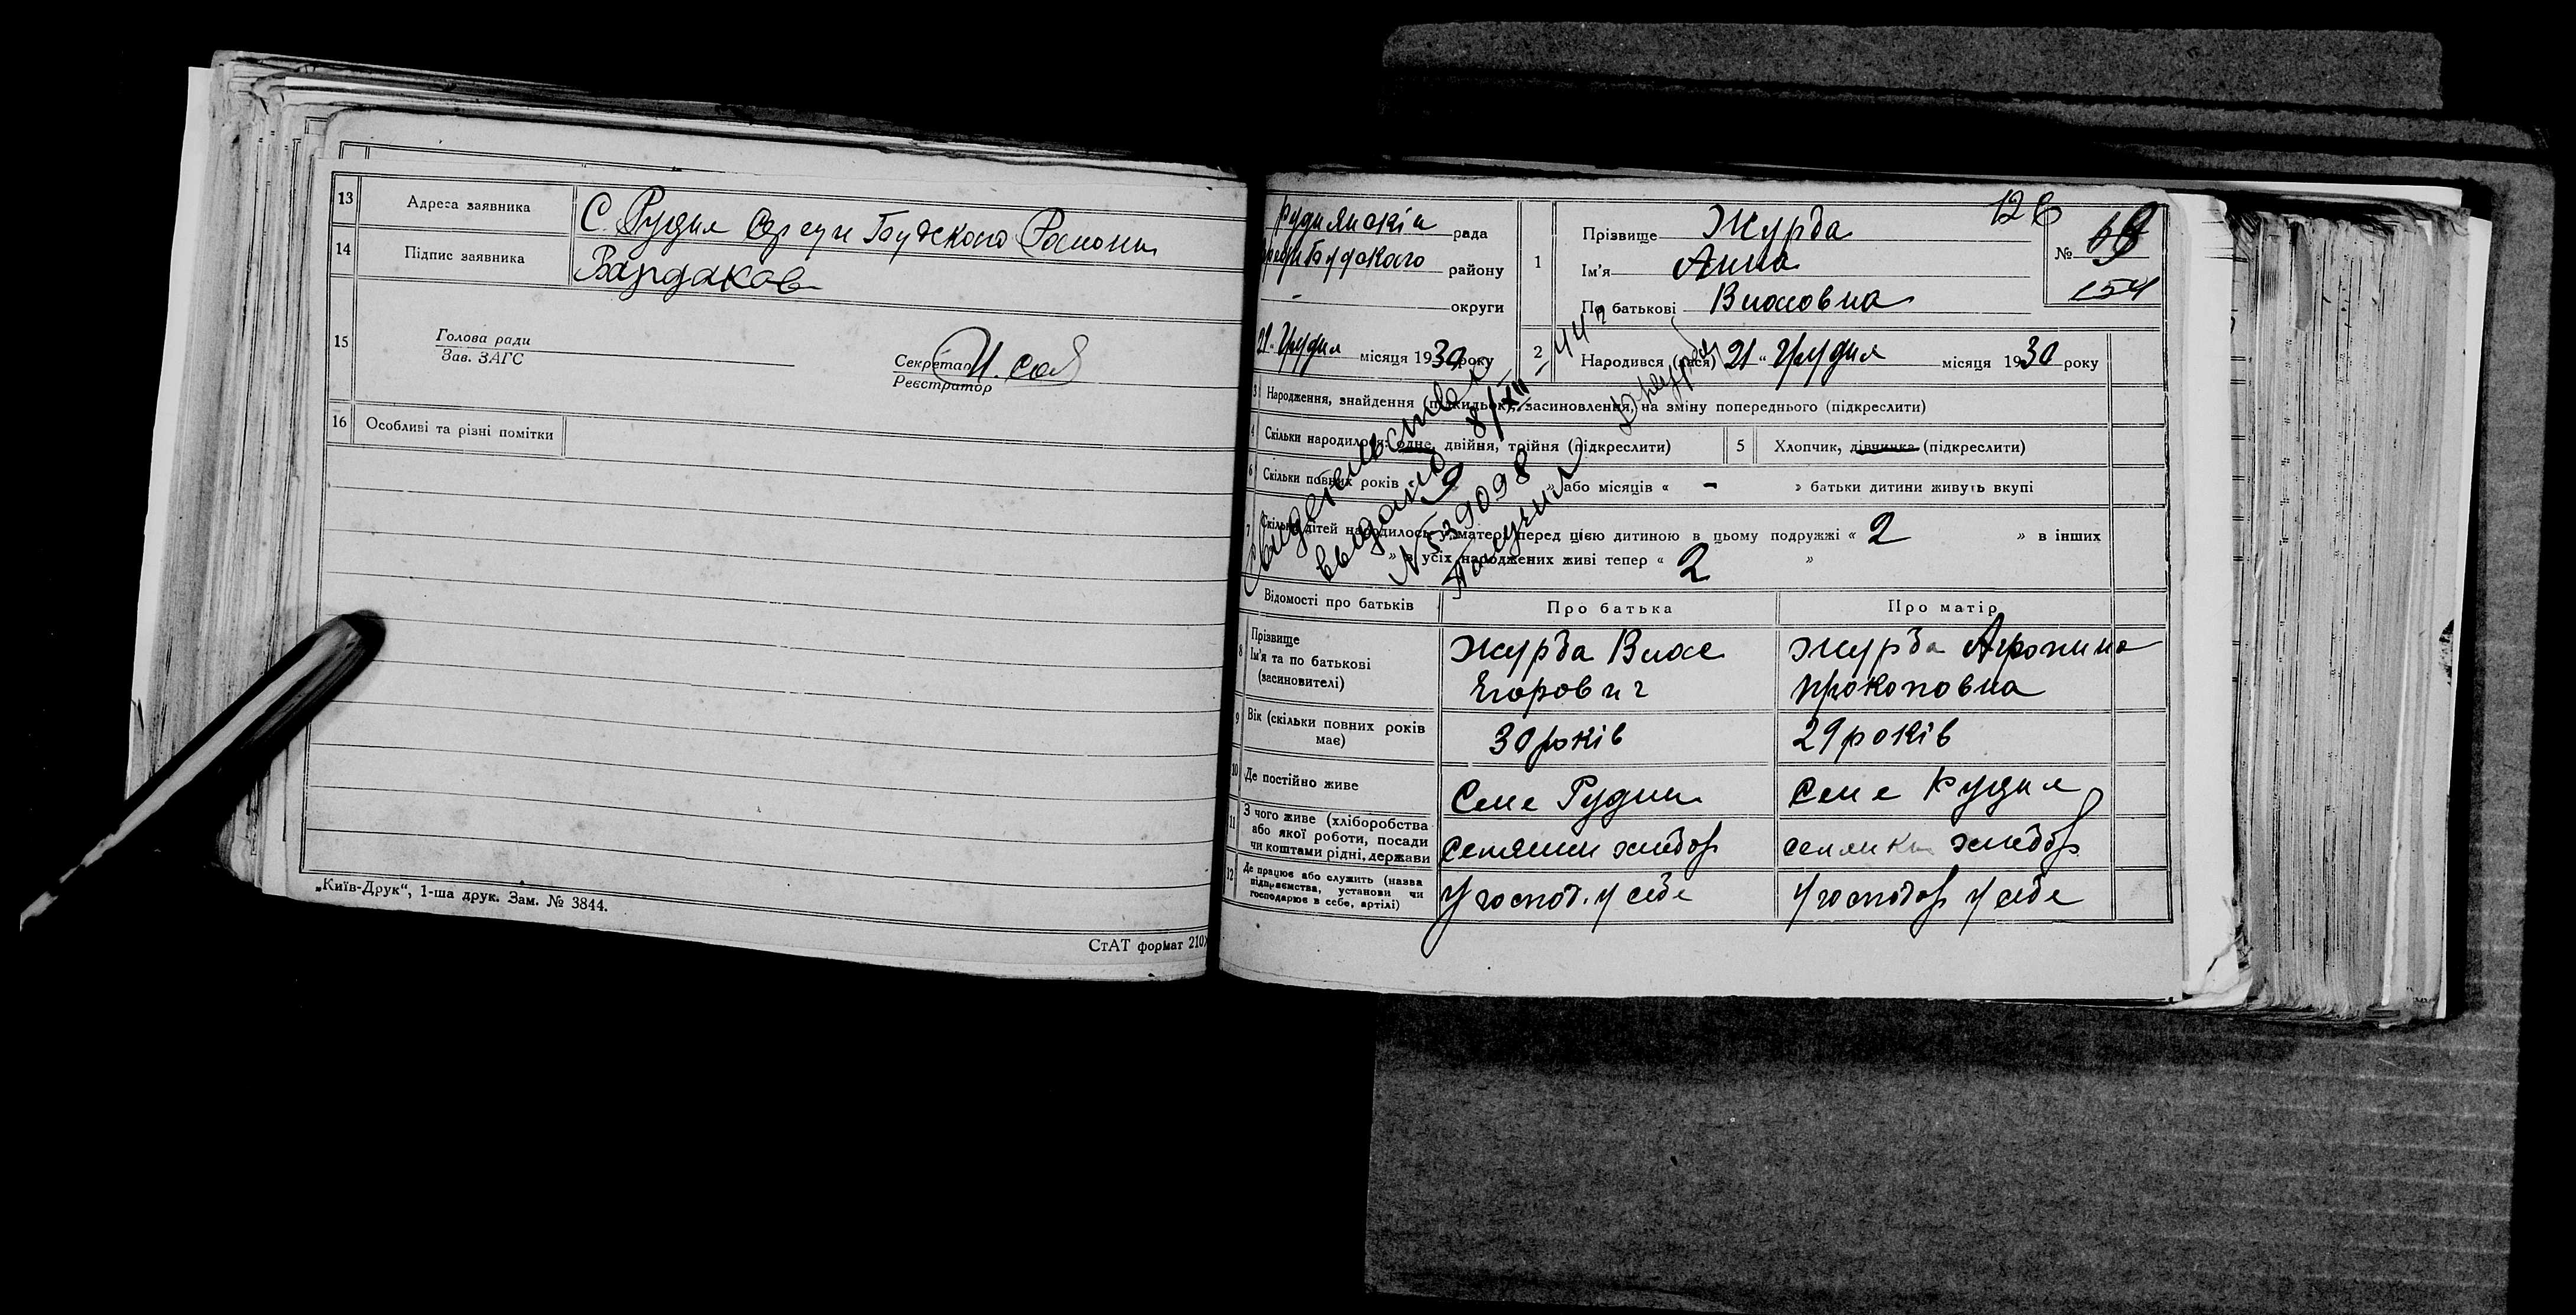 13 Адреса заявника С. Рудня
14 Підпис заявника Вардаков
15 Голова ради
Зав. ЗАГС
Секретар
Реєстратор
16 Особливі та різні помітки
„Київ-Друк“, 1-ша друк. Зам. № 3844.
СтАТ формат 210
Руднянскій рада
району
- округи
21 Грудня місяця 1930 року
1 Прізвище Журба
Ім'я Анна
По батькові Власовна
126
№
154
2 Народився (лася) 21 " Грудня місяця 1930 року
3 Народження, знайдення (підкидьок), засиновлення, на зміну попереднього (підкреслити)
4 Скільки народилося: одне, двійня, трійня (підкреслити)
5 Хлопчик, дівчинка (підкреслити)
6 Скільки повних років « 9 » або місяців « - » батьки дитини живуть вкупі
7 Скільки дітей народилось у матері перед цією дитиною в цьому подружжі « 2 » в інших
» з усіх народжених живі тепер « 2 »
Свидетельство
выдано 8/XII 44 г
N 539098
Получил Журба
Відомості про батьків Про батька Про матір
8 Прізвище
Ім'я та по батькові
(засиновителі)
Журба Влас
Єгорович
Журба
Прокоповна
9 Вік (скільки повних років
має)
30 років
29 років
10 Де постійно живе
Село Рудня
Село Рудня
11 З чого живе (хліборобства
або якої роботи, посади
чи коштами рідні, держави
12 Де працює або служить (назва
відприємства, установи чи
господарює в себе, артілі)
у господ. у себе
у себе